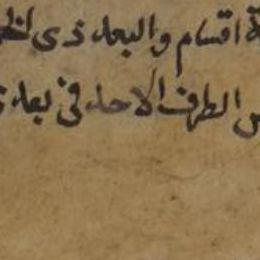 ة اقسام والبعد ذى
الطرف الاحد فى بعد